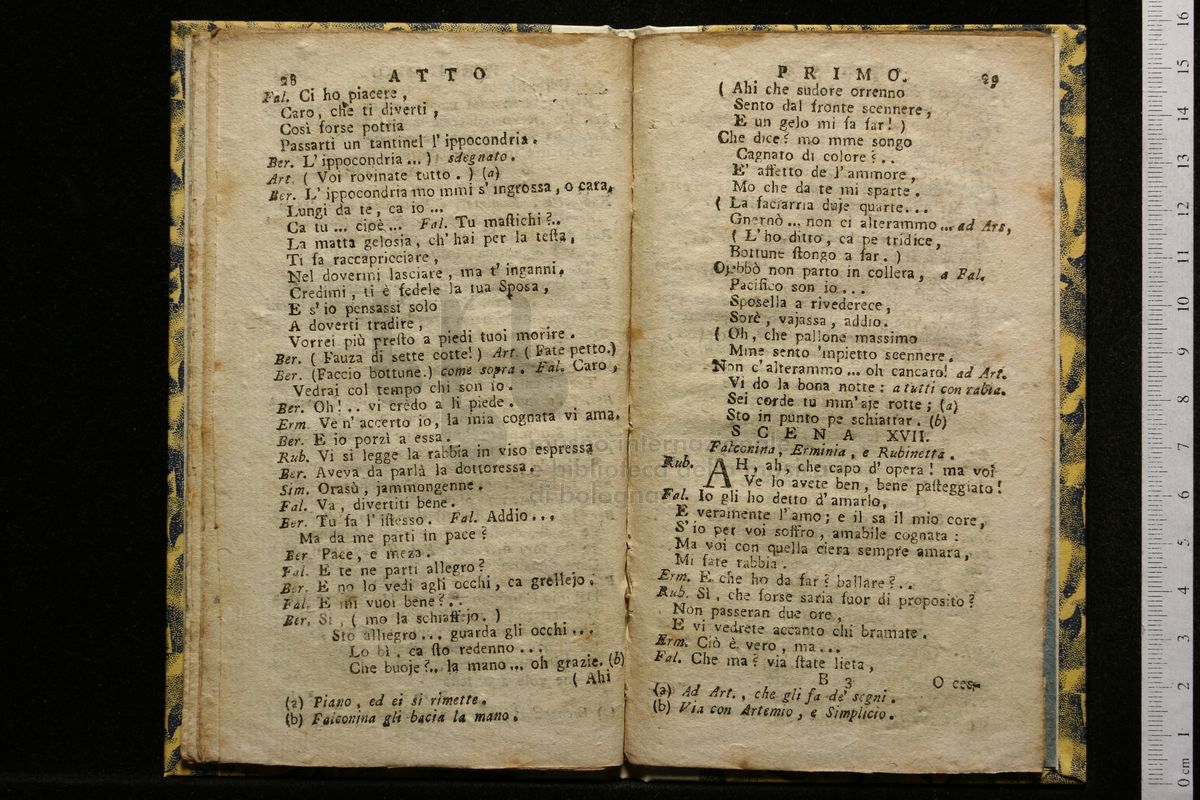 28 ATTO
Fal. Ci ho piacere,
Caro, che ti diverti,
Così forse potria
Passarti un tantinel l'ippocondria.
Ber. L'ippocondria...) sdegnato.
Art. ( Voi rovinate tutto. ) (a)
Ber. L'ippocondria mo mmi s'ingrossa, o cara,
Lungi da te, ca io...
Ca tu... cioè... Fal. Tu mastichi?..
La matta gelosia, ch'hai per la testa,
Ti fa raccapricciare,
Nel dovermi lasciare, ma t'inganni.
Credimi, ti è fedele la tua Sposa,
E s'io pensassi solo
A doverti tradire,
Vorrei più presto a piedi tuoi morire.
Ber. ( Fauza di sette cotte! ) Art. ( Fate petto.)
Ber. (Faccio bottune.) come sopra. Fal. Caro,
Vedrai col tempo chi son io.
Ber. Oh!.. vi credo a li piede.
Erm. Ve n'accerto io, la mia cognata vi ama.
Ber. E io porzì a essa.
Rub. Vi si legge la rabbia in viso espressa
Ber. Aveva da parlà la dottoressa.
Sim. Orasù, jammongenne.
Fal. Va, divertiti bene.
Ber. Tu fa l'istesso. Fal. Addio...
Ma da me parti in pace?
Ber. Pace, e meza.
Fal. E te ne parti allegro?
Ber. E no lo vedi agli occhi, ca grellejo.
Fal. E mi vuoi bene?..
Ber. Si, ( mo la schiaffejo. )
Sto alliegro... guarda gli occhi...
Lo bì, ca sto redenno...
Che buoje?.. la mano... oh grazie. (b)
( Ahi
(a) Piano, ed ei si rimette.
(b) Falconina gli bacia la mano.
PRIMO. 29
( Ahi che sudore orrenno
Sento dal fronte scennere,
E un gelo mi fa far! )
Che dice? mo mme songo
Cagnato di colore?..
E' affetto de l'ammore,
Mo che da te mi sparte.
( La faciarria duje quarte...
Gnernò... non ci alterammo... ad Art,
( L'ho ditto, ca pe tridice,
Bottune stongo a far. )
Ojebbò non parto in collera, a Fal.
Pacifico son io...
Sposella a rivederece,
Sorè, vajassa, addio.
( Oh, che pallone massimo
Mme sento 'mpietto scennere.
Non c'alterammo... oh cancaro! ad Art.
Vi do la bona notte: a tutti con rabia.
Sei corde tu mm'aje rotte; (a)
Sto in punto pe schiattar. (b)
SCENA XVII.
Falconina, Erminia, e Rubinetta.
Rub. AH, ah, che capo d'opera! ma voi
Ve lo avete ben, bene pasteggiato!
Fal. Io gli ho detto d'amarlo,
E veramente l'amo; e il sa il mio core,
S'io per voi soffro, amabile cognata:
Ma voi con quella ciera sempre amara,
Mi fate rabbia.
Erm. E che ho da far? ballare?..
Rub. Sì, che forse saria fuor di proposito?
Non passeran due ore,
E vi vedrete accanto chi bramate.
Erm. Ciò è vero, ma...
Fal. Che ma? via state lieta,
B 3 O ces-
(a) Ad Art., che gli fa de' segni.
(b) Via con Artemio, e Simplicio.